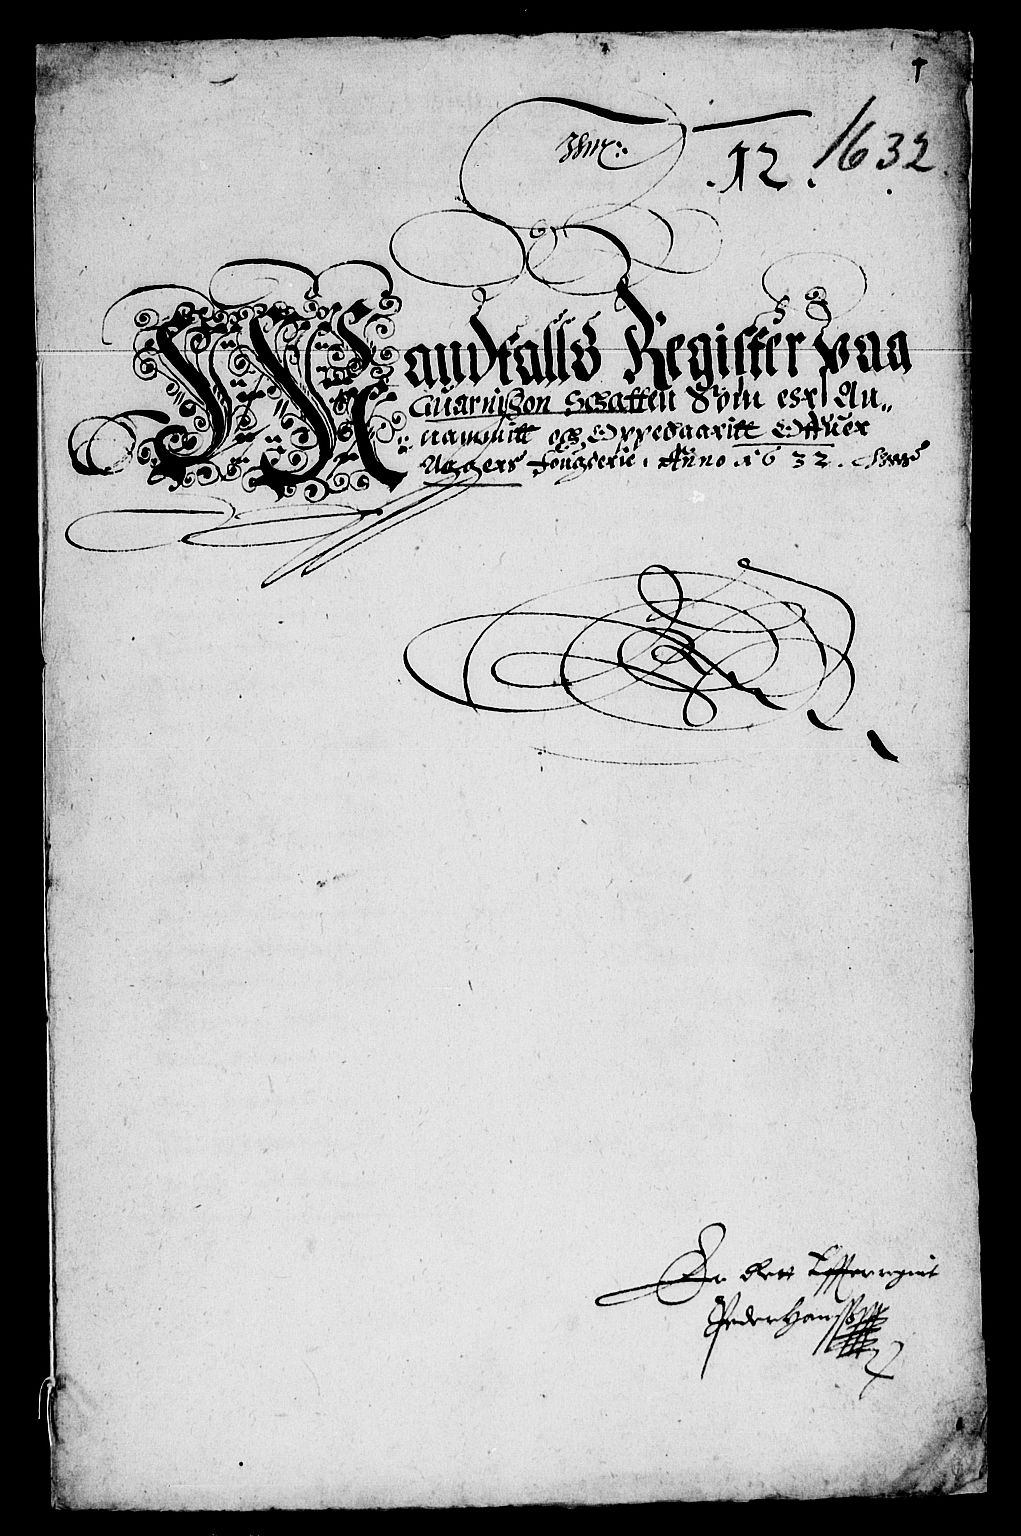 12. 1632
Mandtalls Register paa
Guarnißon Schatten Som er An„
nammitt och Oppebaaritt Offuer
Aggers fougderie. Anno 1632.
Er rett Efterregnit
Peder Hanss